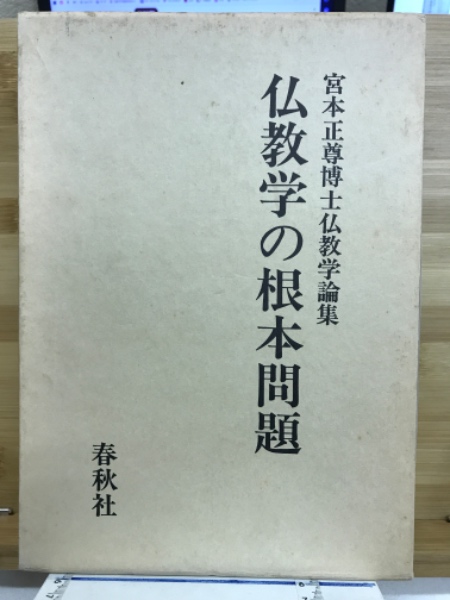 宮本正尊博士仏教学論集
仏教学の根本問題
春秋社